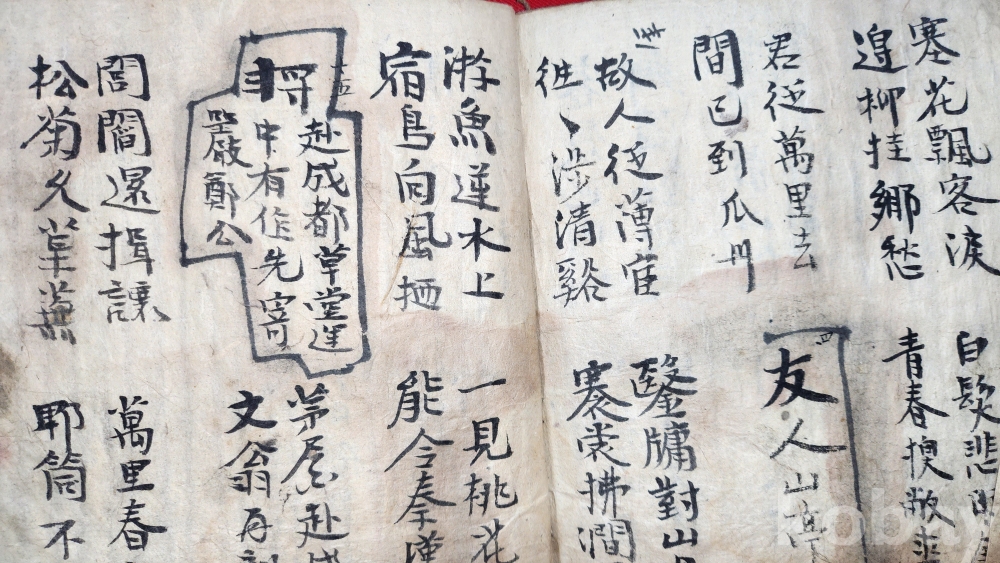 塞花飄客淚
邊柳挂鄉愁
白髮悲明
青春換敝裘
君從萬里去
間已到瓜州
四
友人山亭
故人從薄宦
往〻涉清谿
鑿牖對山月
褰裳拂澗
游魚逆水上
宿鳥向風栖
一見桃花
能令秦漢
將
赴成都草堂途
中有作先寄
嚴鄭公
茅屋赴成
文翁再剖
閭閻還揖讓
松菊久荒蕪
萬里春
耶筒不
kobay